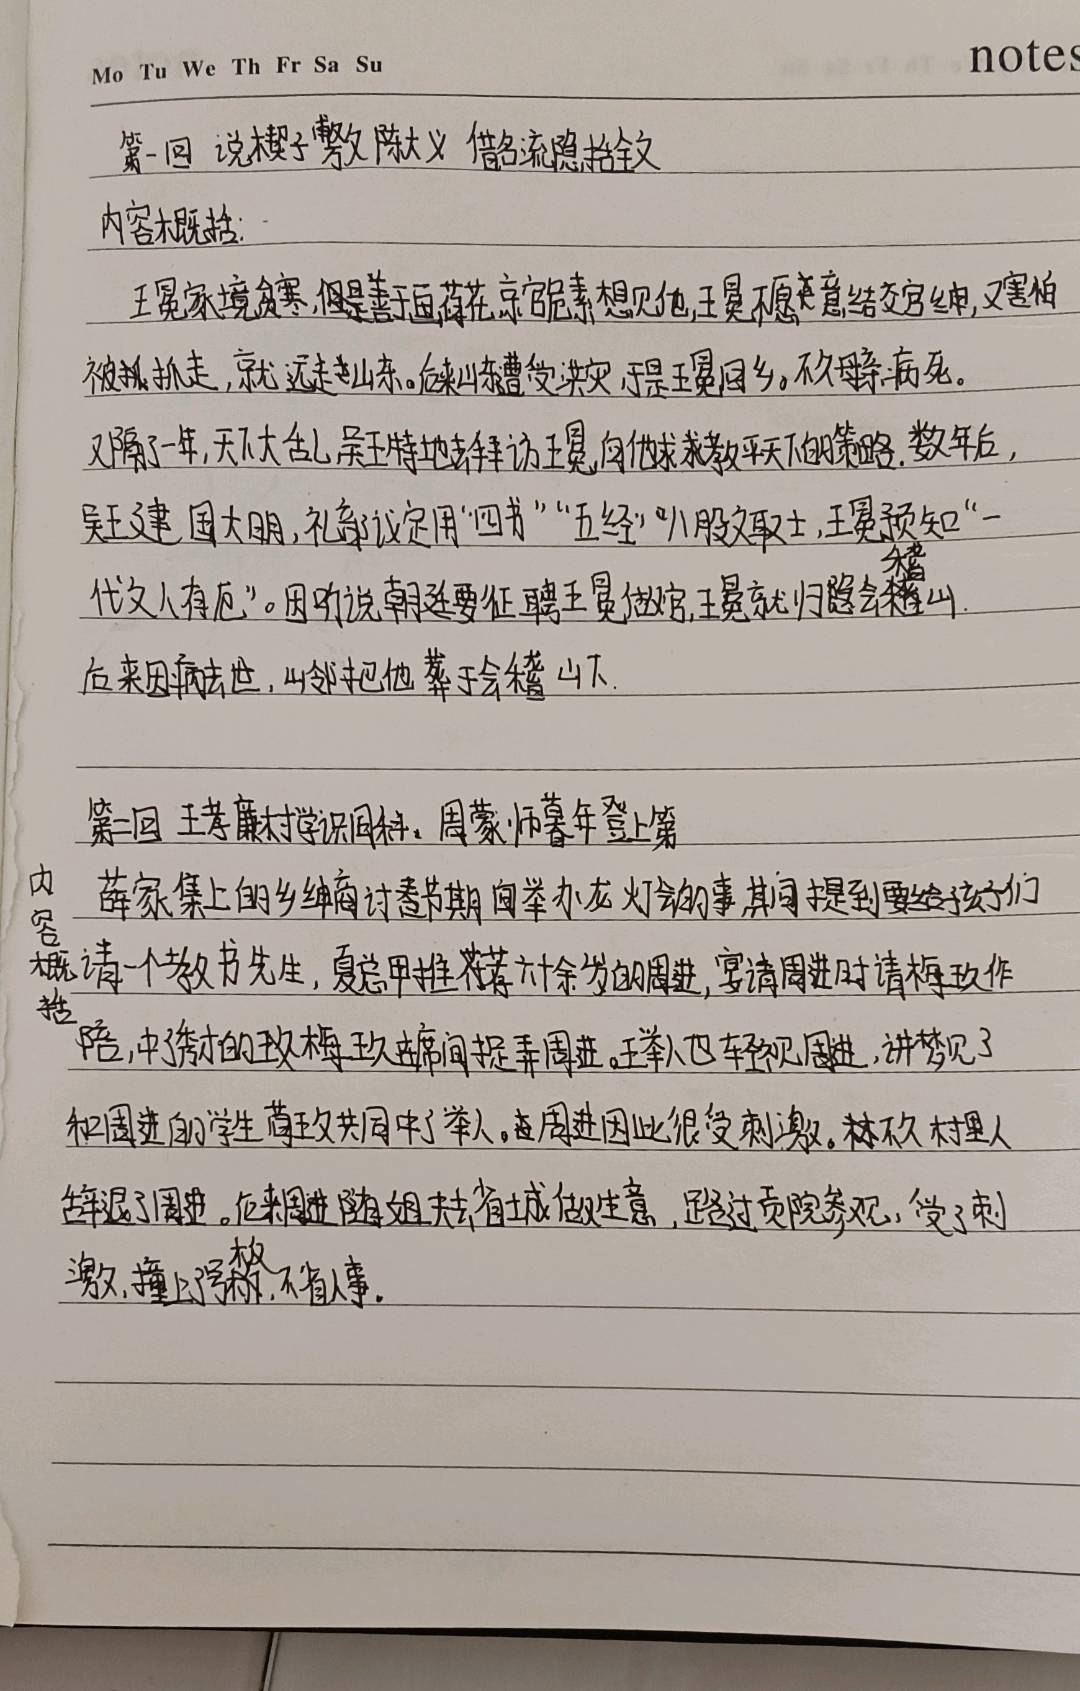 Mo Tu We Th Fr Sa Su
notes
第一回 说楔子敷陈大义 借名流隐括全文
内容概括:
王冕家境贫寒,但是善于画荷花,京官危素想见他,王冕不愿意结交官绅,又害怕
被抓走,就远走山东。后来山东遭受洪灾,于是王冕回乡。不久母亲病死。
又隔了一年,天下大乱,吴王特地去拜访王冕,向他求教平天下的策略.数年后,
吴王建国大明,礼部议定用“四书”“五经”“八股文取士,王冕预知“一
代文人有厄”。因听说朝廷要征聘王冕做官,王冕就归隐会稽山.
后来因病去世,山邻把他葬于会稽山下.
第二回 王孝廉村学识同科。周蒙师暮年登上第
内容概括
薛家集上的乡绅商讨春节期间举办龙灯会的事,其间提到要给孩子们
请一个教书先生,夏总甲推荐六十余岁的周进,宴请周进时请梅玖作
陪,中了秀才的梅玖在席间捉弄周进。王举人也轻视周进,讲梦见了
和周进的学生荀玫共同中了举人。周进因此很受刺激。不久村里人
辞退了周进。后来周进随姐夫去省城做生意,路过贡院参观,受了刺
激,撞上了号板,不省人事。